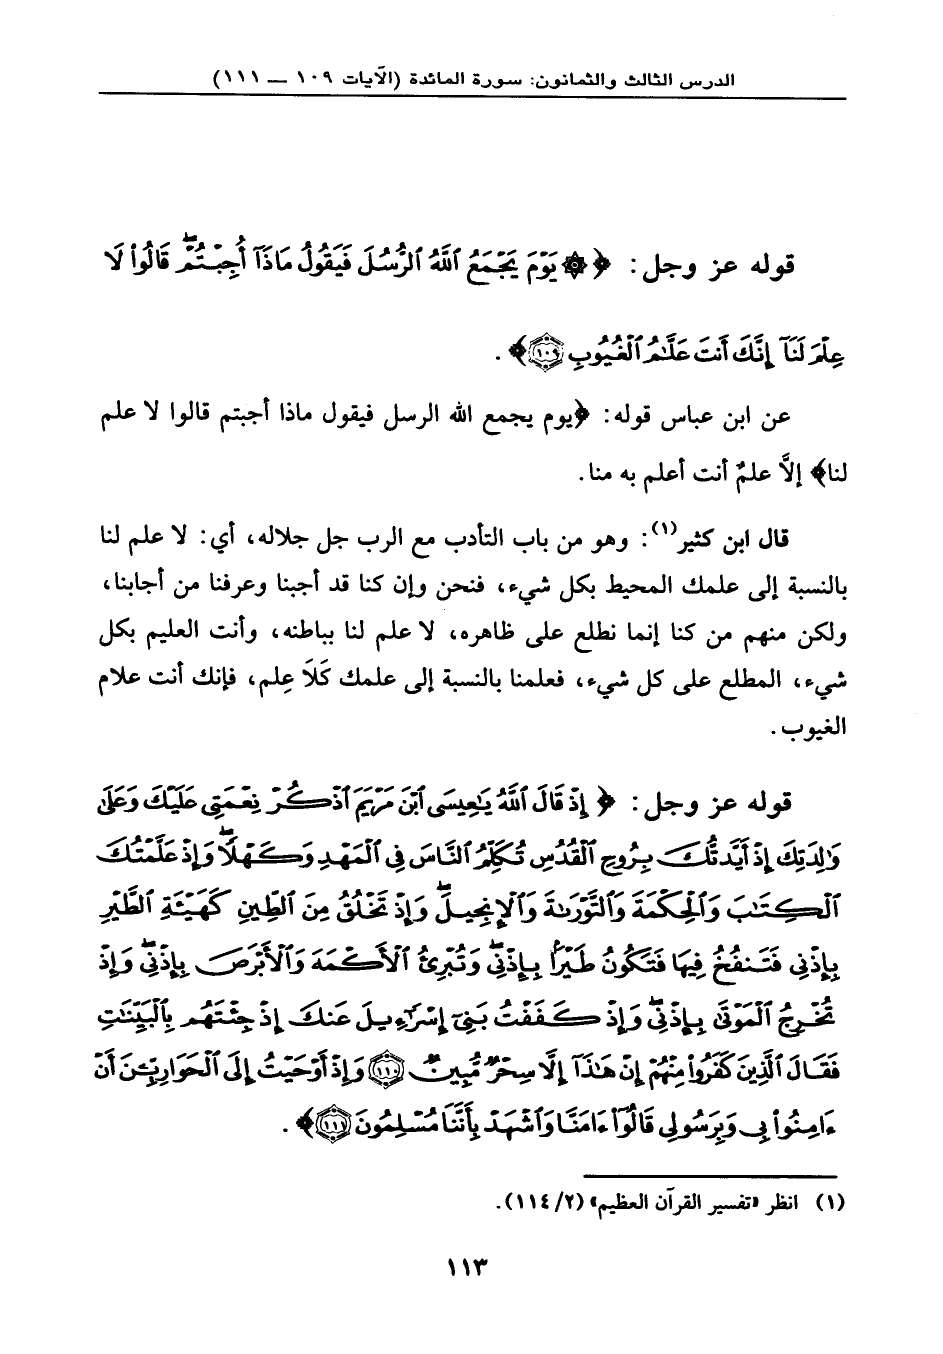 الدرس الثالث والثمانون: سورة المائدة (الآيات ١٠٩ — ١١١)
قوله عز وجل: ﴿۞ يَوْمَ يَجْمَعُ ٱللَّهُ ٱلرُّسُلَ فَيَقُولُ مَاذَآ أُجِبْتُمْ ۖ قَالُوا۟ لَا
عِلْمَ لَنَآ إِنَّكَ أَنتَ عَلَّٰمُ ٱلْغُيُوبِ ١٠٩﴾ .
عن ابن عباس قوله: ﴿يوم يجمع الله الرسل فيقول ماذا أجبتم قالوا لا علم
لنا﴾ إلاَّ علمٌ أنت أعلم به منا.
قال ابن كثير(١): وهو من باب التأدب مع الرب جل جلاله، أي: لا علم لنا
بالنسبة إلى علمك المحيط بكل شيء، فنحن وإن كنا قد أجبنا وعرفنا من أجابنا،
ولكن منهم من كنا إنما نطلع على ظاهره، لا علم لنا بباطنه، وأنت العليم بكل
شيء، المطلع على كل شيء، فعلمنا بالنسبة إلى علمك كَلاَ عِلم، فإنك أنت علام
الغيوب.
قوله عز وجل: ﴿ إِذْ قَالَ ٱللَّهُ يَٰعِيسَى ٱبْنَ مَرْيَمَ ٱذْكُرْ نِعْمَتِى عَلَيْكَ وَعَلَىٰ
وَٰلِدَتِكَ إِذْ أَيَّدتُّكَ بِرُوحِ ٱلْقُدُسِ تُكَلِّمُ ٱلنَّاسَ فِى ٱلْمَهْدِ وَكَهْلًا ۖ وَإِذْ عَلَّمْتُكَ
ٱلْكِتَٰبَ وَٱلْحِكْمَةَ وَٱلتَّوْرَىٰةَ وَٱلْإِنجِيلَ ۖ وَإِذْ تَخْلُقُ مِنَ ٱلطِّينِ كَهَيْـَٔةِ ٱلطَّيْرِ
بِإِذْنِى فَتَنفُخُ فِيهَا فَتَكُونُ طَيْرًۢا بِإِذْنِى ۖ وَتُبْرِئُ ٱلْأَكْمَهَ وَٱلْأَبْرَصَ بِإِذْنِى ۖ وَإِذْ
تُخْرِجُ ٱلْمَوْتَىٰ بِإِذْنِى ۖ وَإِذْ كَفَفْتُ بَنِىٓ إِسْرَٰٓءِيلَ عَنكَ إِذْ جِئْتَهُم بِٱلْبَيِّنَٰتِ
فَقَالَ ٱلَّذِينَ كَفَرُوا۟ مِنْهُمْ إِنْ هَٰذَآ إِلَّا سِحْرٌ مُّبِينٌ ١١٠ وَإِذْ أَوْحَيْتُ إِلَى ٱلْحَوَارِيِّـۧنَ أَنْ
ءَامِنُوا۟ بِى وَبِرَسُولِى قَالُوٓا۟ ءَامَنَّا وَٱشْهَدْ بِأَنَّنَا مُسْلِمُونَ ١١١﴾ .
(١) انظر «تفسير القرآن العظيم» (١١٤/٢).
١١٣